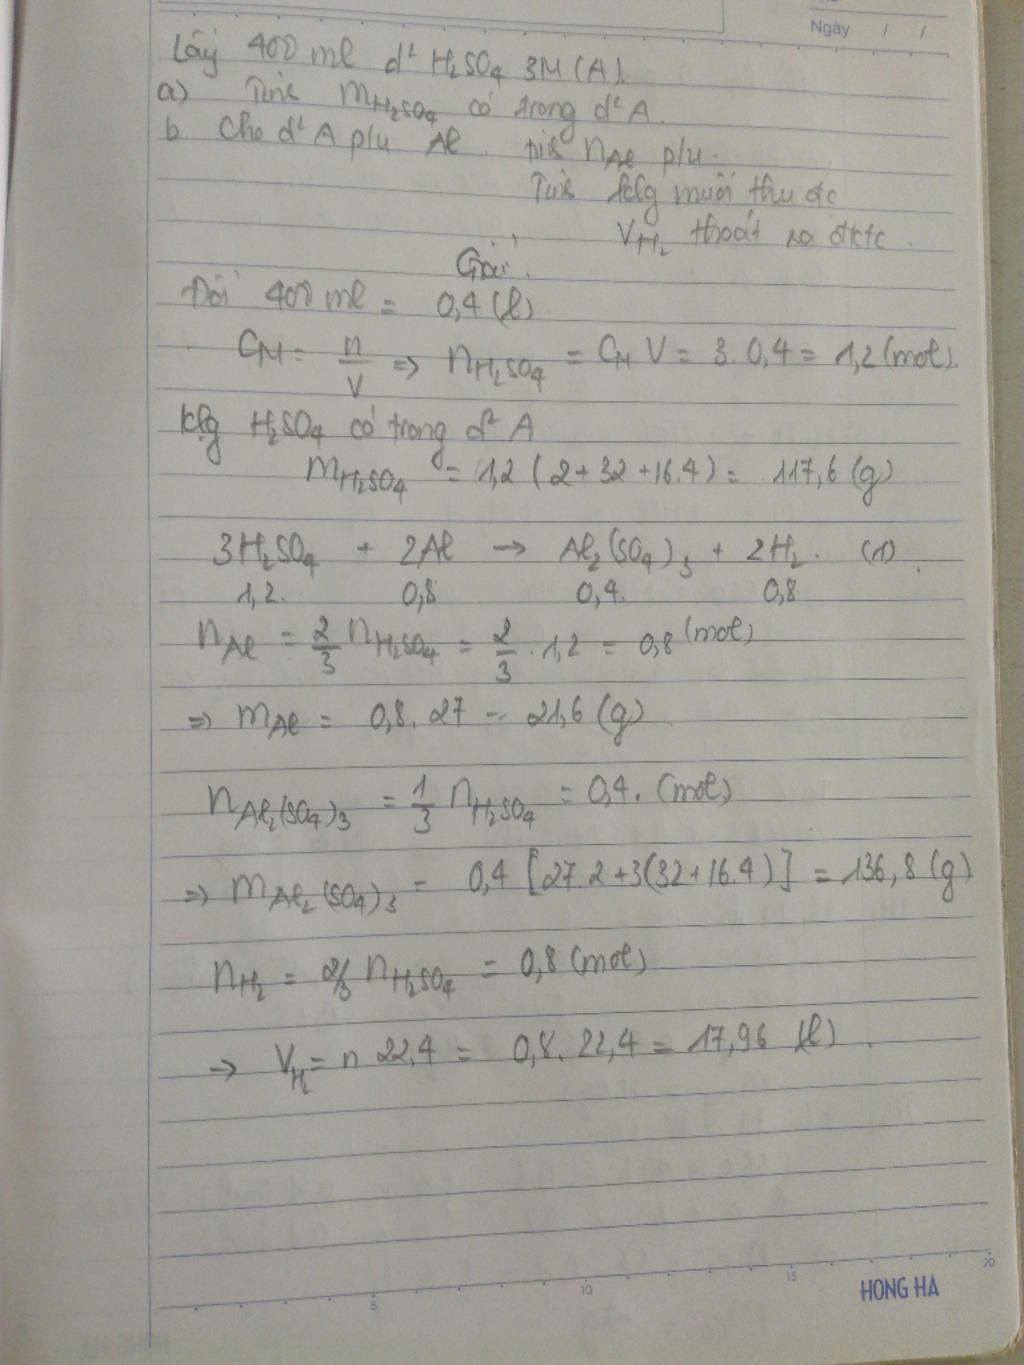 Ngày / /
Lấy 400 ml d² H₂SO₄ 3M (A).
a) Tính mH₂SO₄ có trong d² A.
b Cho d² A p/u Al tính nAl p/u.
Tính klg muối thu đc
VH₂ thoát ra đktc.
Giải.
Đổi 400 ml = 0,4 (l)
CM = n/V => nH₂SO₄ = CM V = 3. 0,4 = 1,2 (mol).
klg H₂SO₄ có trong d² A
mH₂SO₄ = 1,2 (2+32+16.4) = 117,6 (g)
3H₂SO₄ + 2Al → Al₂(SO₄)₃ + 2H₂. (1)
1,2. 0,8 0,4. 0,8
nAl = 2/3 nH₂SO₄ = 2/3 . 1,2 = 0,8 (mol)
=> mAl = 0,8. 27 = 21,6 (g)
nAl₂(SO₄)₃ = 1/3 nH₂SO₄ = 0,4. (mol)
=> mAl₂(SO₄)₃ = 0,4 [27.2+3(32+16.4)] = 136,8 (g)
nH₂ = 2/3 nH₂SO₄ = 0,8 (mol)
→ VH₂ = n 22,4 = 0,8. 22,4 = 17,96 (l).
5 10 15 20
HONG HA